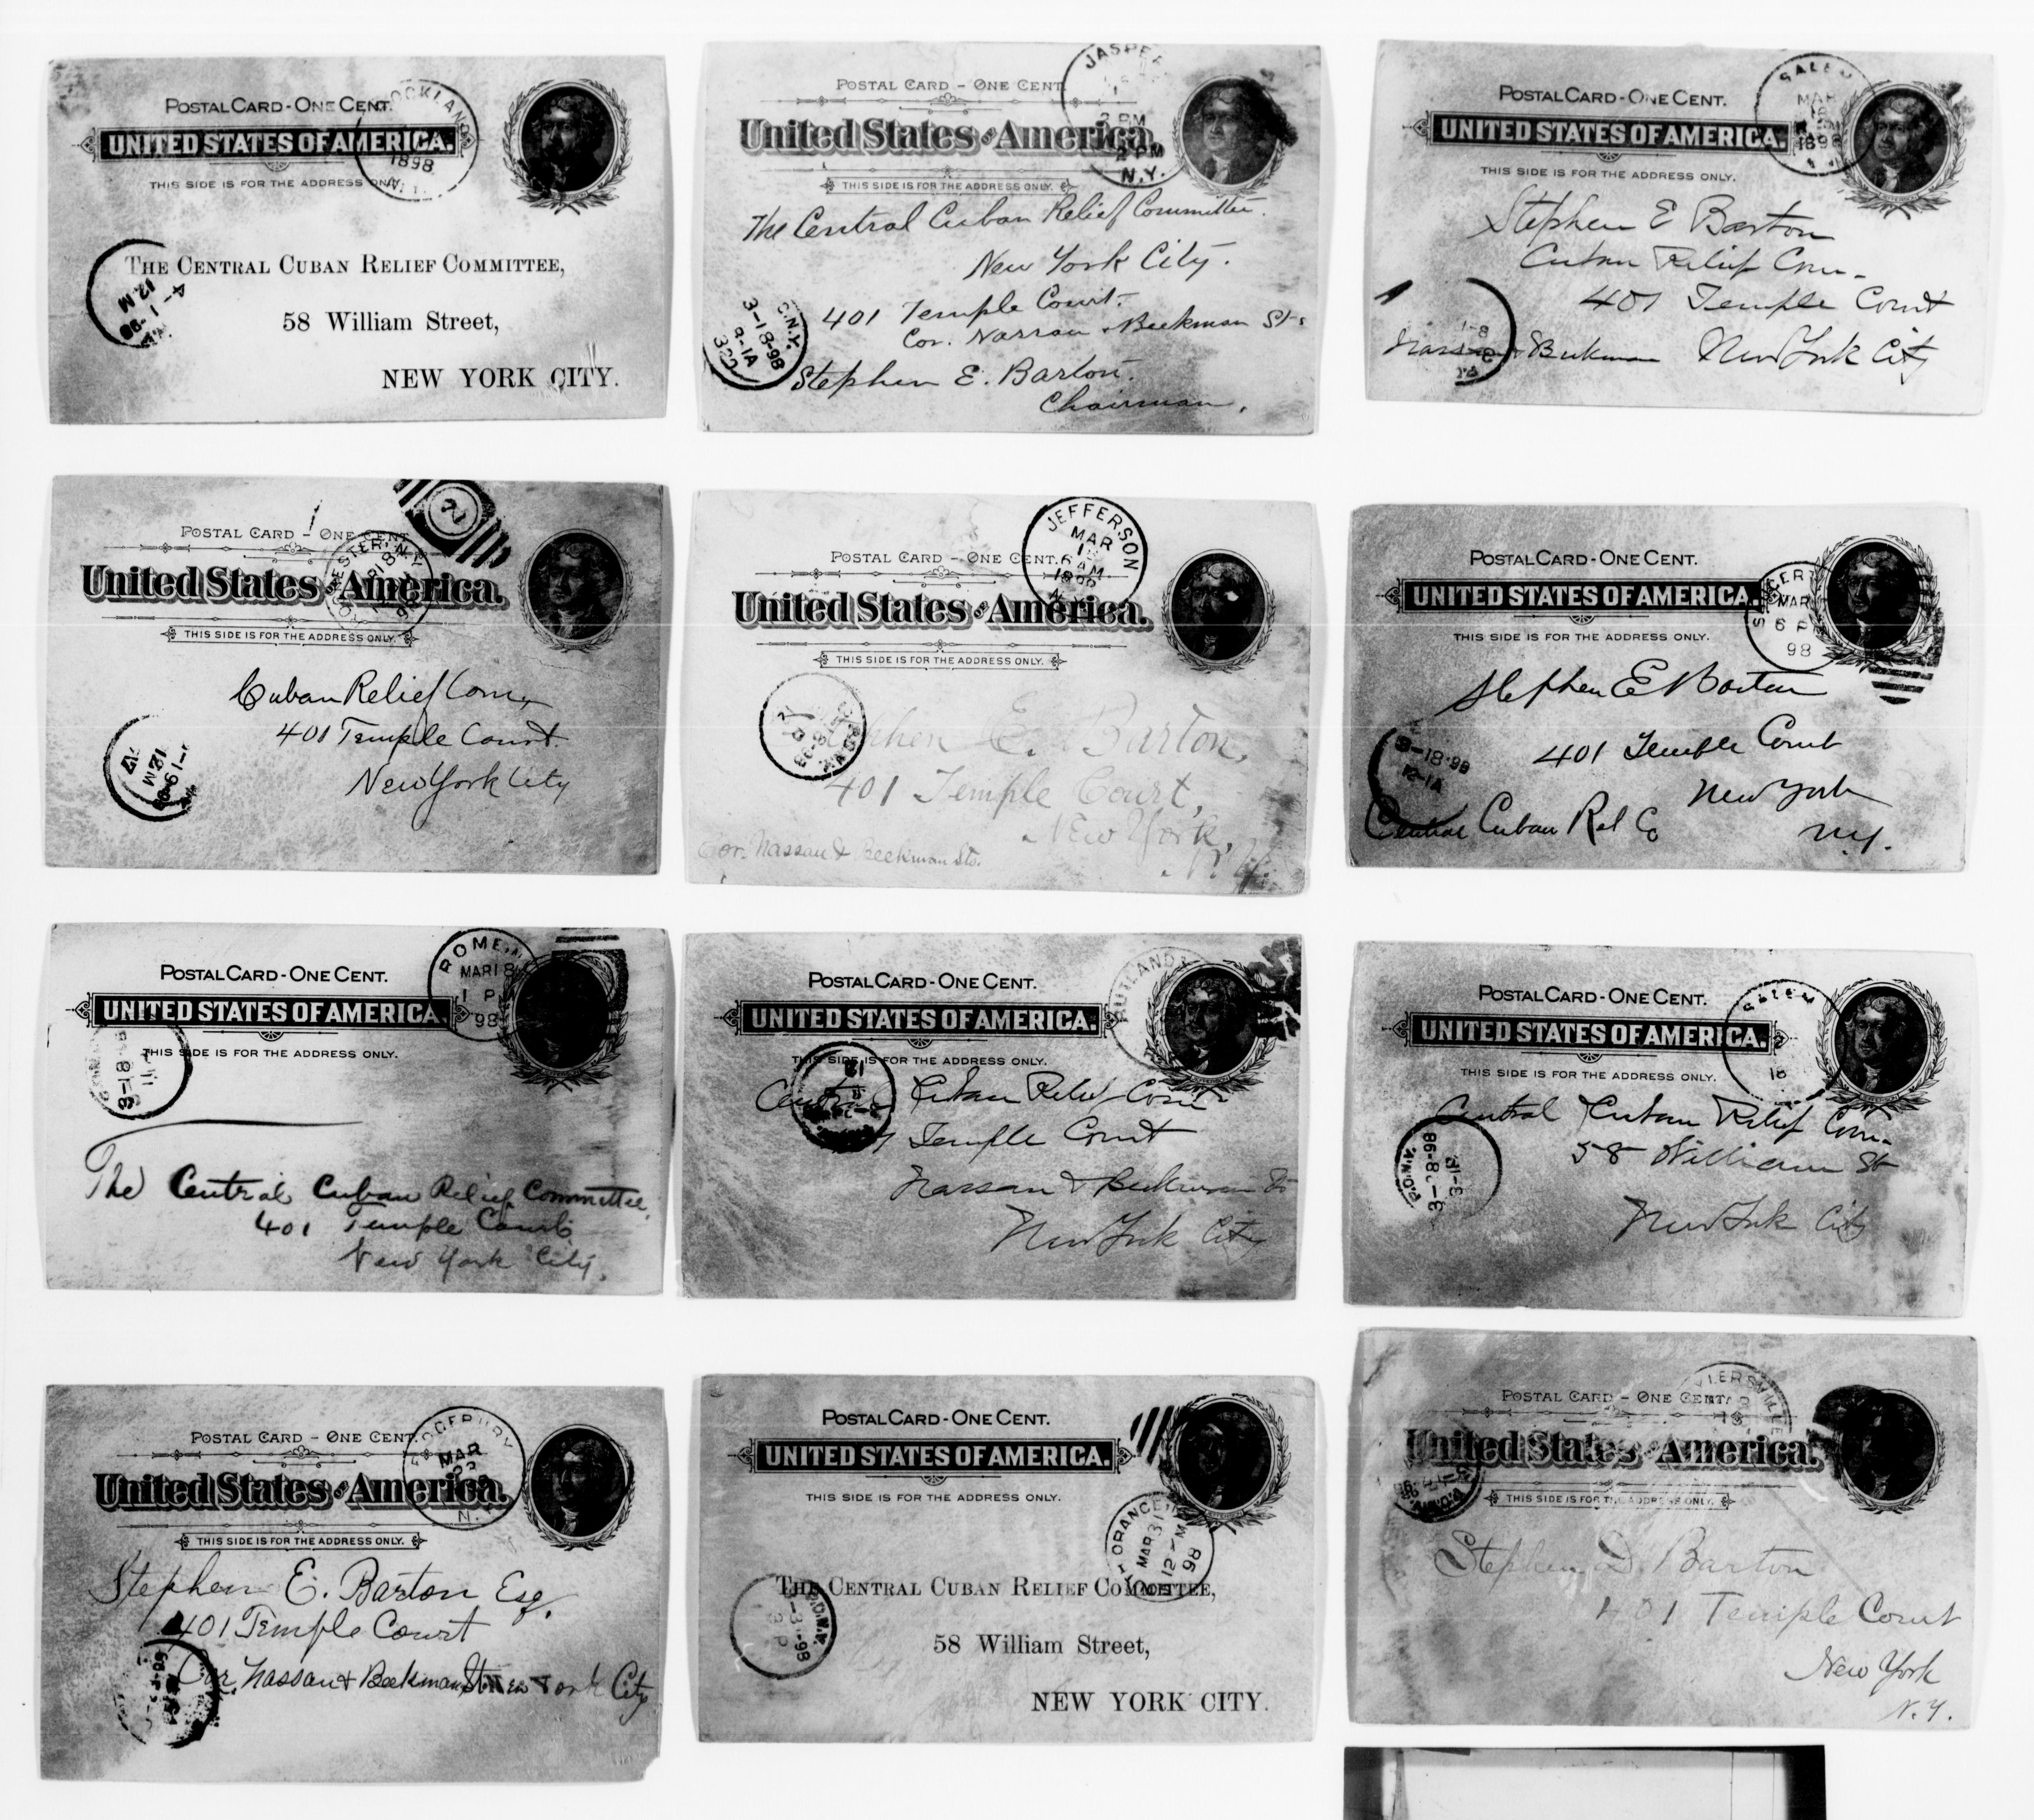 POSTAL CARD - ONE CENT.
UNITED STATES OF AMERICA.
THIS SIDE IS FOR THE ADDRESS ONLY.
1898
THE CENTRAL CUBAN RELIEF COMMITTEE,
58 William Street,
NEW YORK CITY.
12 M
POSTAL CARD - ONE CENT.
United States of America.
THIS SIDE IS FOR THE ADDRESS ONLY.
2 PM
N.Y.
The Central Cuban Relief Committee.
New York City.
401 Temple Court.
Cor. Nassau & Beekman Sts
Stephen E. Barton.
Chairman.
3-18-98
9-1A
POSTAL CARD - ONE CENT.
UNITED STATES OF AMERICA.
THIS SIDE IS FOR THE ADDRESS ONLY.
SALEM
MAR
1898
Stephen E Barton
Cuban Relief Com-
401 Temple Court
Nassau & Beekman New York City
POSTAL CARD - ONE CENT
United States of America.
THIS SIDE IS FOR THE ADDRESS ONLY.
2
Cuban Relief Com,
401 Temple Court.
New York City
12 M
POSTAL CARD - ONE CENT.
United States of America.
THIS SIDE IS FOR THE ADDRESS ONLY.
JEFFERSON
MAR
6 AM
Stephen E. Barton,
401 Temple Court,
New York,
N.Y.
Cor. Nassau & Beekman Sts.
POSTAL CARD - ONE CENT.
UNITED STATES OF AMERICA.
THIS SIDE IS FOR THE ADDRESS ONLY.
MAR
6 P
98
Stephen E Barton
401 Temple Court
New York
N.Y.
Central Cuban Rel Co
12-1A
POSTAL CARD - ONE CENT.
UNITED STATES OF AMERICA.
THIS SIDE IS FOR THE ADDRESS ONLY.
ROME, N
MAR 18
1 P
98
The Central Cuban Relief Committee,
401 Temple Court,
New York City.
POSTAL CARD - ONE CENT.
UNITED STATES OF AMERICA.
THIS SIDE IS FOR THE ADDRESS ONLY.
RUTLAND
Central Cuban Relief Com
Temple Court
Nassau & Beekman St
New York City
POSTAL CARD - ONE CENT.
UNITED STATES OF AMERICA.
THIS SIDE IS FOR THE ADDRESS ONLY.
SALEM
18
Central Cuban Relief Com-
58 William St
New York City
P.O.N.Y.
POSTAL CARD - ONE CENT.
United States of America.
THIS SIDE IS FOR THE ADDRESS ONLY.
MAR
Stephen E. Barton Esq.
401 Temple Court
Cor Nassau & Beekman St. New York City
POSTAL CARD - ONE CENT.
UNITED STATES OF AMERICA.
THIS SIDE IS FOR THE ADDRESS ONLY.
ORANGE
MAR 31
12 - M
98
THE CENTRAL CUBAN RELIEF COMMITTEE,
58 William Street,
NEW YORK CITY.
POSTAL CARD - ONE CENT.
United States of America.
THIS SIDE IS FOR THE ADDRESS ONLY.
Stephen D. Barton
401 Temple Court
New York
N.Y.